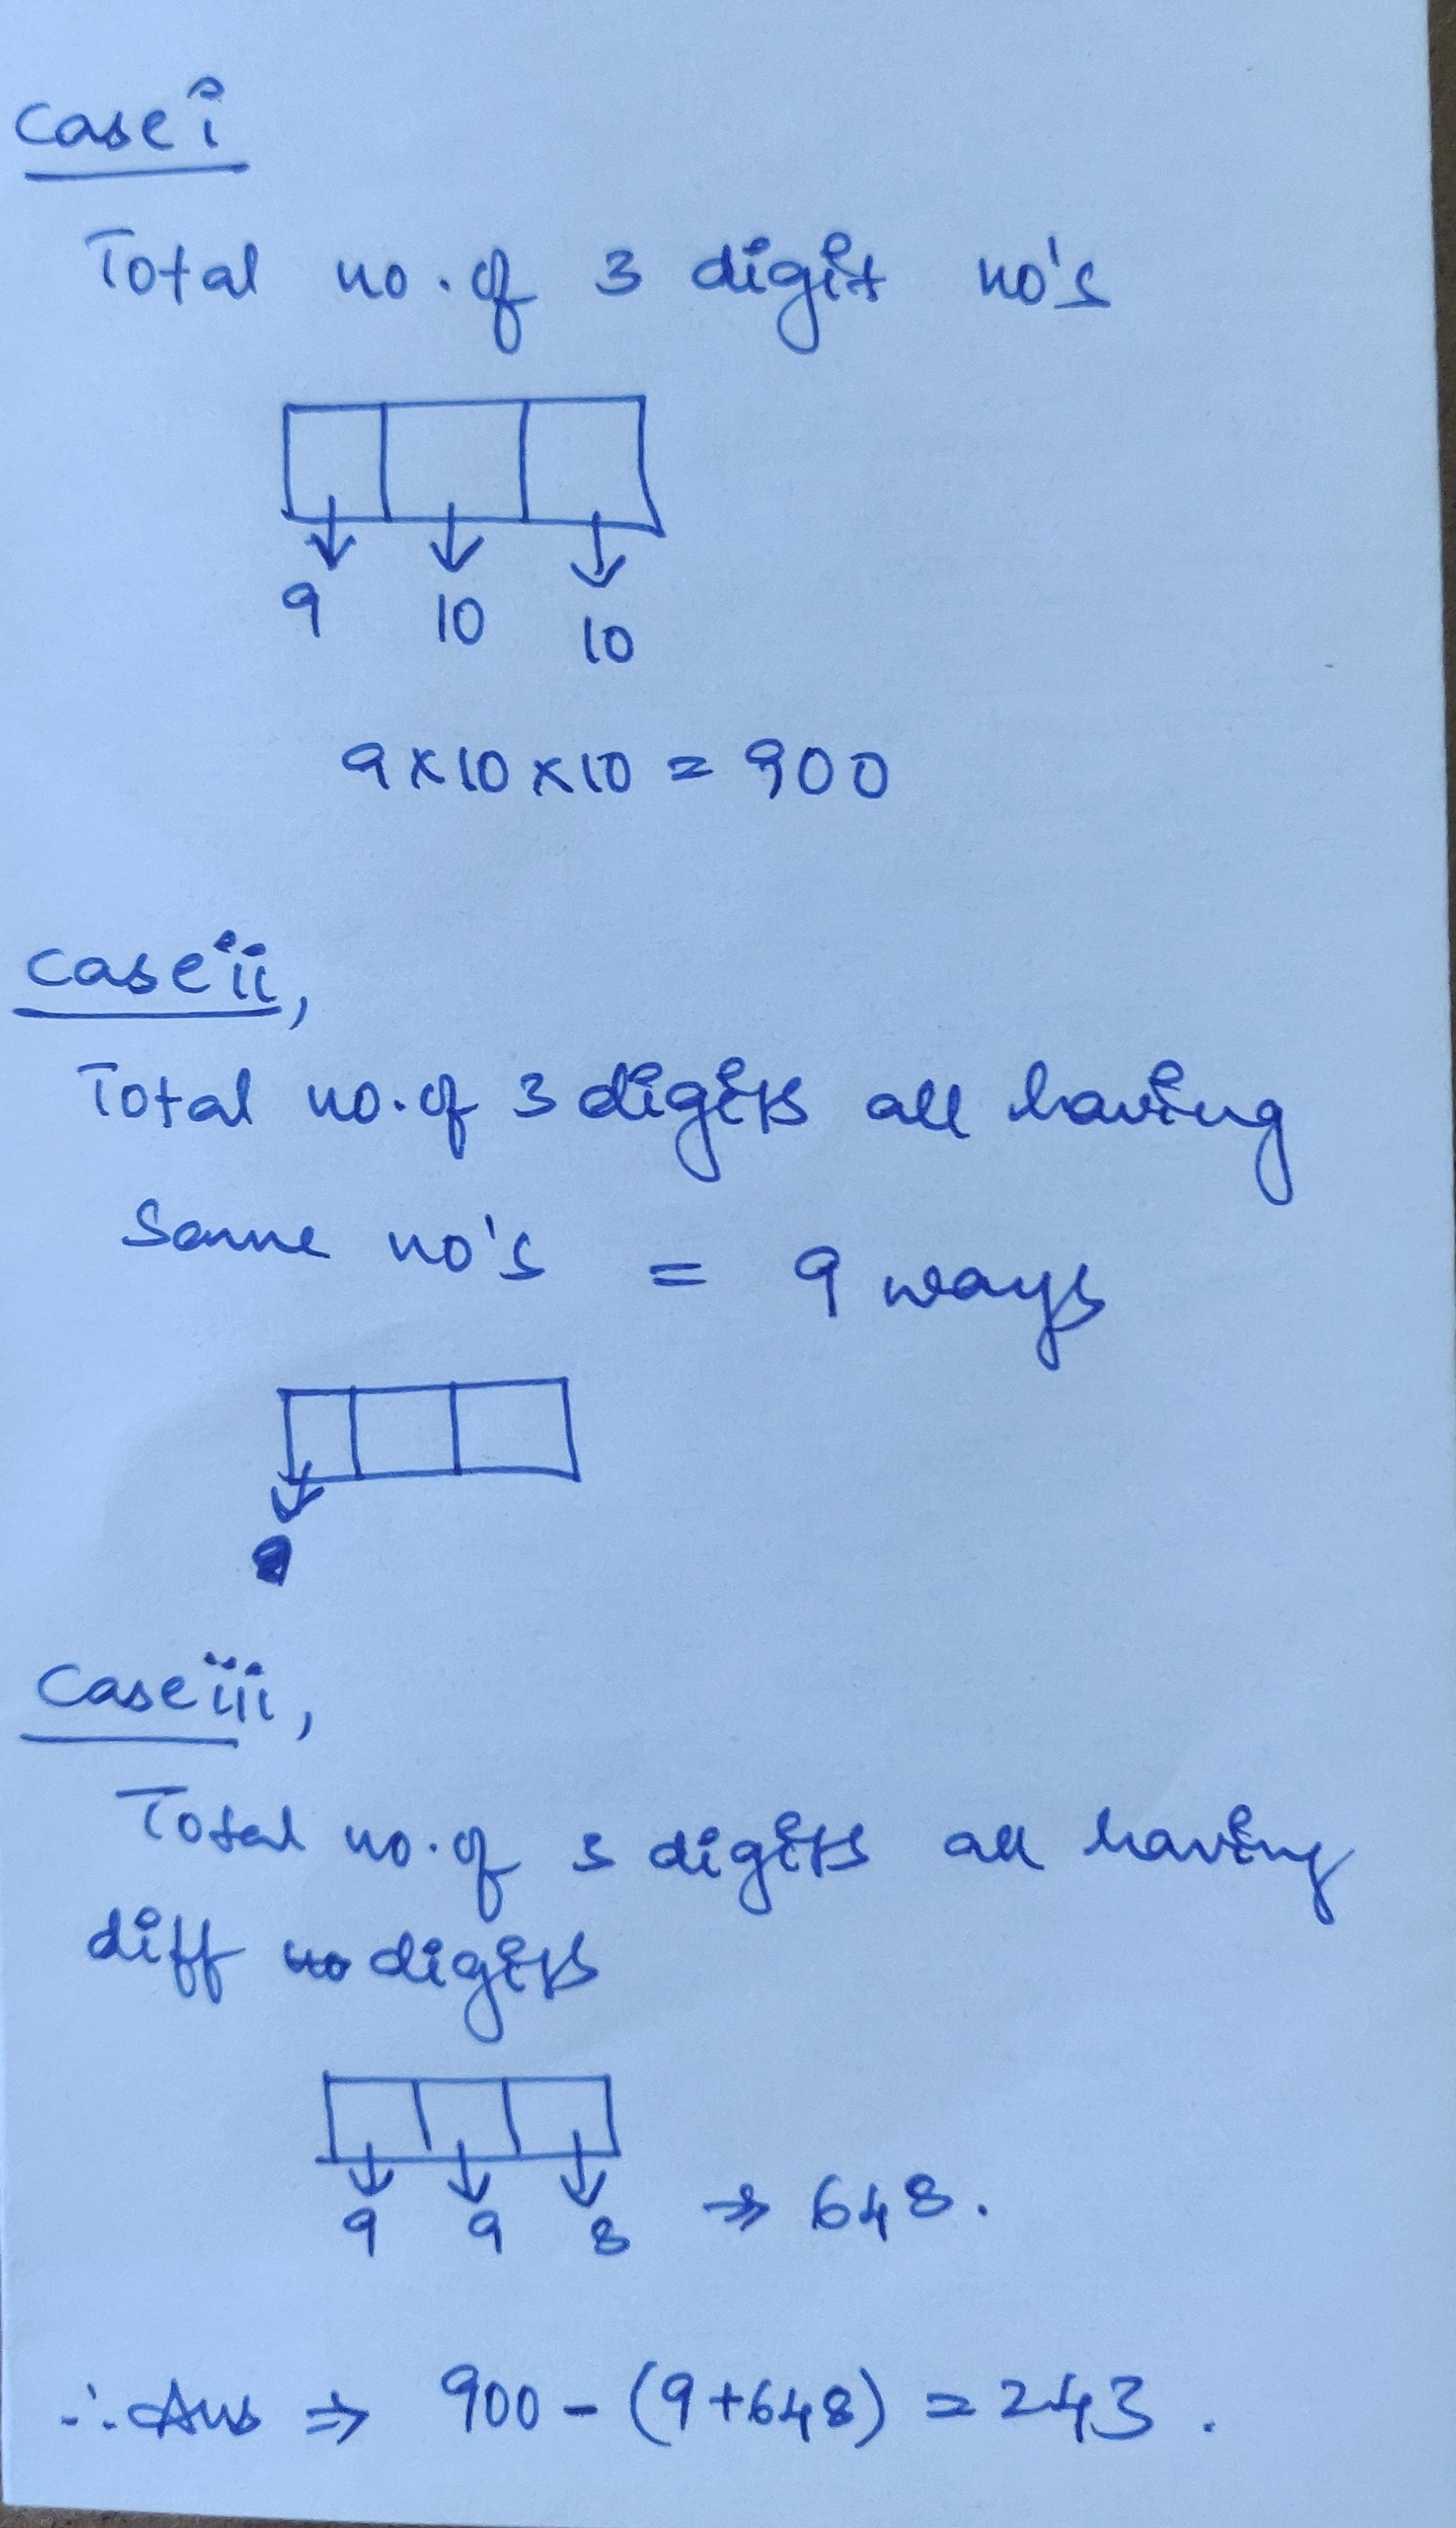 case i
Total no. of 3 digit no's
9 10 10
9 x 10 x 10 = 900
case ii,
Total no. of 3 digits all having
Same no's = 9 ways
case iii,
Total no. of 3 digits all having
diff digits
9 9 8 ⇒ 648.
∴ Ans ⇒ 900 - (9+648) = 243.